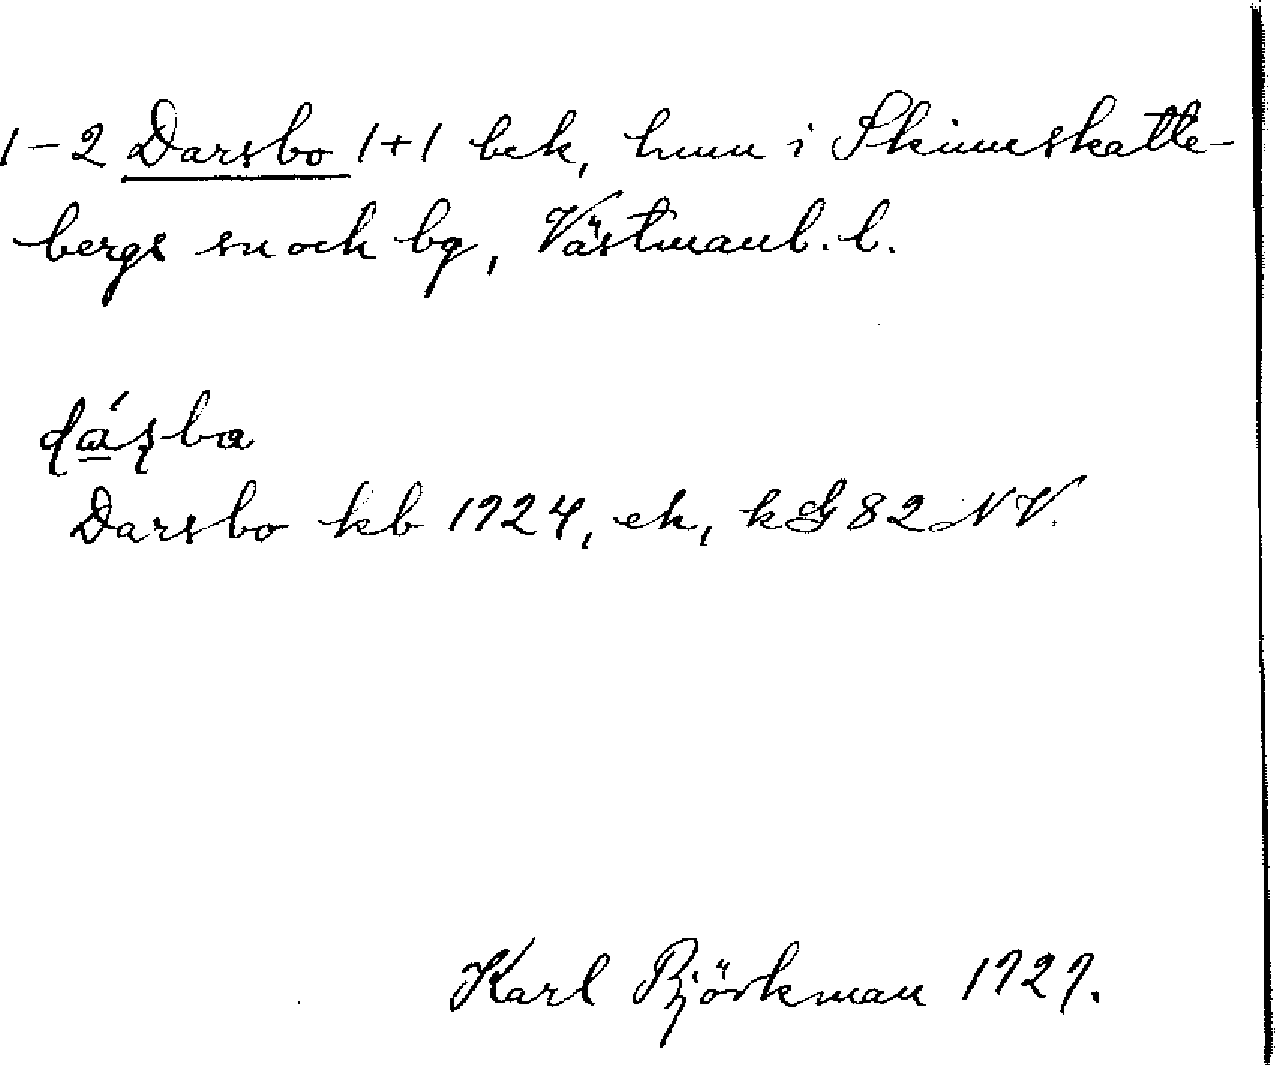 1-2 Darsbo 1+1 bek, hmn i Skinnskatte-
bergs sn och bg, Västmanl. l.
dáʂba
Darsbo kb 1924, ek, kG 82 NV.
Karl Björkman 1929.